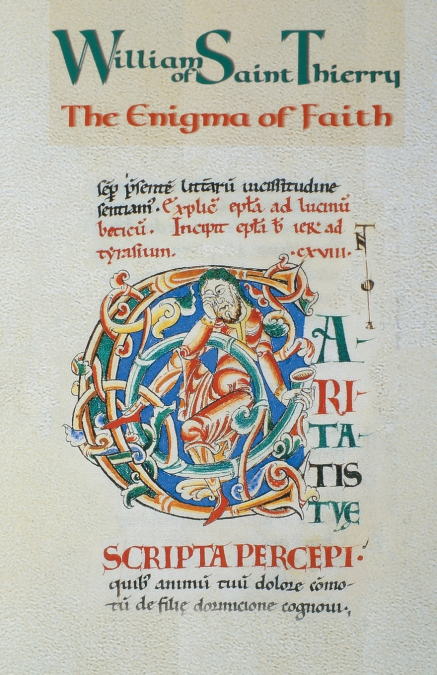 William of Saint Thierry
The Enigma of Faith
sēp p̄sentē litt̄arū uicissitudine
sentiam. Explic̄ epła ad lucinū
beticū. Incipit epła b̄ ier̄ ad
tyrasium. .CXVIII.
CARITATIS
TVE
SCRIPTA PERCEPI.
quib' animū tuū dolore cōmo-
tū de filie dormicione cognoui.,